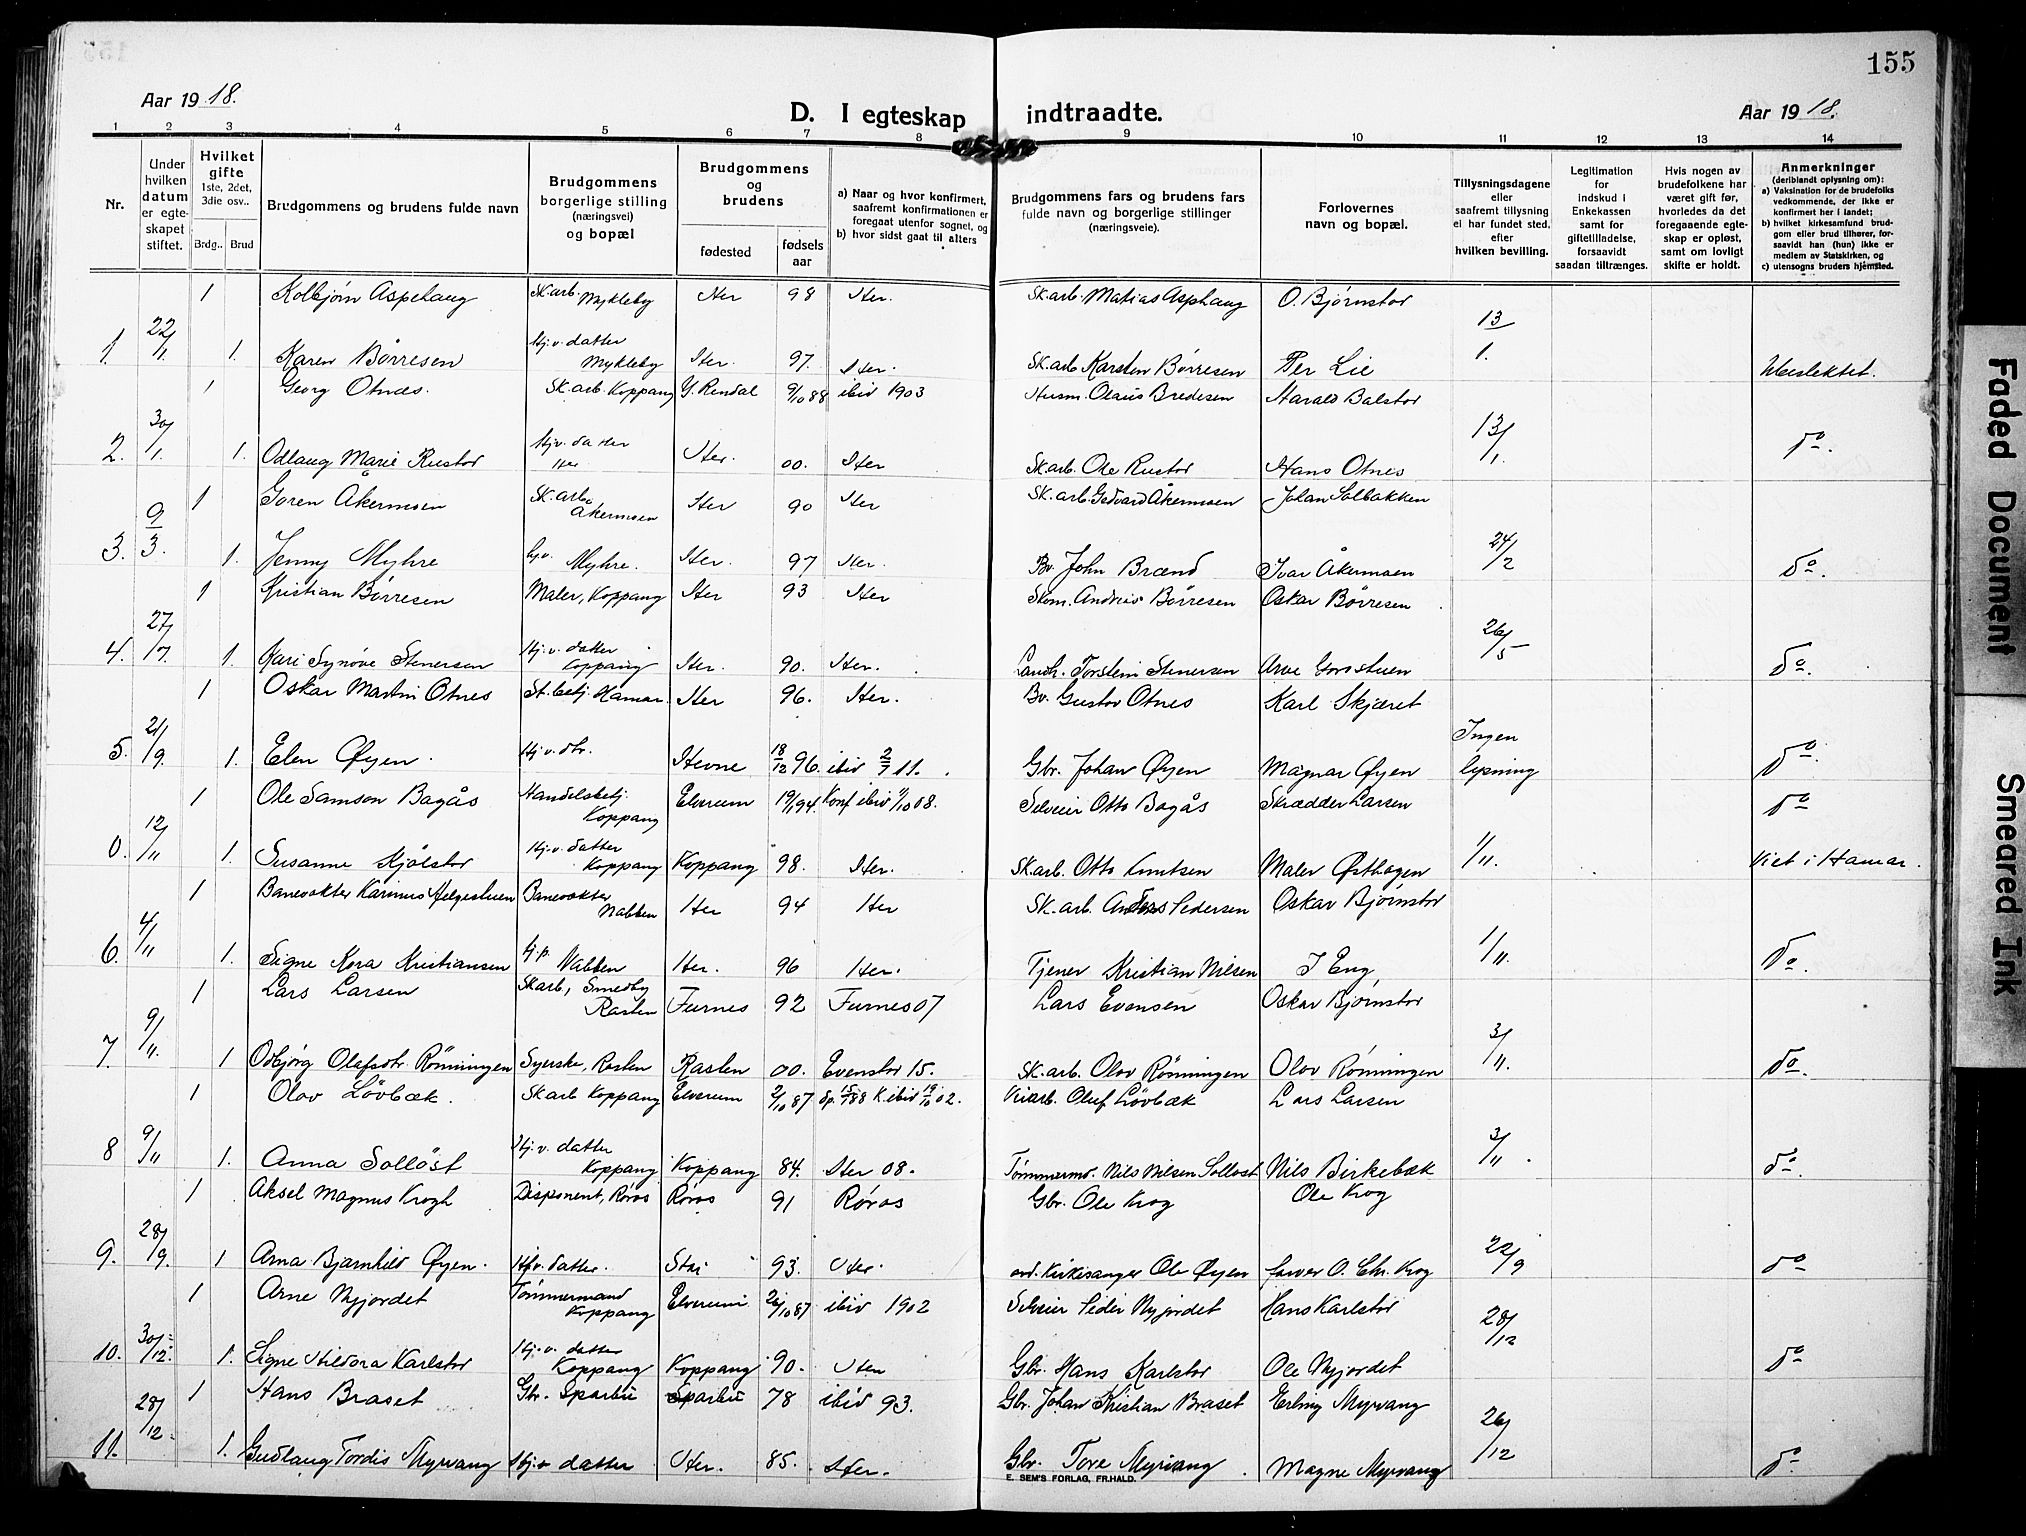 155
Aar 1918.
D. I egteskap indtraadte.
Aar 1918.
1 2 3 4 5 6 7 8 9 10 11 12 13 14
Nr.
Under hvilken datum er egteskapet stiftet.
Hvilket gifte 1ste, 2det, 3die osv..
Brdg.. Brud
Brudgommens og brudens fulde navn
Brudgommens borgerlige stilling (næringsvei) og bopæl
Brudgommens og brudens
fødested
fødselsaar
a) Naar og hvor konfirmert, saafremt konfirmationen er foregaat utenfor sognet, og
b) hvor sidst gaat til alters
Brudgommens fars og brudens fars fulde navn og borgerlige stillinger (næringsveie).
Forlovernes navn og bopæl.
Tillysningsdagene eller saafremt tillysning ei har fundet sted, efter hvilken bevilling.
Legitimation for indskud i Enkekassen samt for giftetilladelse, forsaavidt saadan tiltrænges.
Hvis nogen av brudefolkene har været gift før, hvorledes da det foregaaende egteskap er opløst, samt om lovligt skifte er holdt.
Anmerkninger (deriblandt oplysning om):
a) Vaksination for de brudefolks vedkommende, der ikke er konfirmert her i landet;
b) hvilket kirkesamfund brudgom eller brud tilhører, forsaavidt han (hun) ikke er medlem av Statskirken, og
c) utensogns bruders hjemsted.
1 Kolbjørn Aspehaug Sk.arb. Mykleby Her 98 Her. Sk.arb. Matias Asphaug O. Bjørnstor
1. 22/1 1. Karen Børresen Hj.v. datter Mykleby Her. 97. Her. Sk.arb Karsten Børresen Per Lie 13/1. Ubeslektet.
1 Georg Otnes. Sk.arb. Koppang Y. Rendal 9/10 88 ibid 1903 Husm. Olaus Bredesen Harald Balstor
2. 30/1. 1. Odlaug Marie Rustor Hj.v. datter Her Her. 00. Her Sk.arb. Ole Rustor Hans Otnes 13/1. do.
1 Goren Åkermoen Sk.arb. Åkermoen Her 90 Her Sk.arb. Gedvard Åkermoen Johan Solbakken
3. 9/3. 1. Jenny Myhre hj.v. Myhre. Her. 97 Her. Bv. John Brænd Ivar Åkermoen 24/2 do.
1 Kristian Børresen Maler, Koppang Her 93 Her Skom. Andreis Børresen Oskar Børresen
4. 27/7. 1. Kari Synøve Stenersen Hj.v. datter Koppang Her. 90. Her. Landh. Torstein Stenersen Arve Gorostuen 26/5 do.
1 Oskar Martin Otnes St.betj. Hamar. Her 96. Her. Bv. Gustav Otnes Karl Skjæret
5. 21/9. 1. Elen Øyen. Hj.v. dtr. Hevne 18/12 96. ibid 2/7 11. Gbr. Johan Øyen Magnar Øyen Ingen lysning do.
1 Ole Samson Bagås Handelsbetj. Koppang Elverum 19/1 94. Konf. ibid 4/10 08. Selveier Otto Bagås Skrædder Larsen do
0. 12/11 1. Susanne Kjølstor Hj.v. datter Koppang Koppang 98. Her. Sk.arb. Otto Knutsen Maler Østhagen 1/11. Viet i Hamar.
1 Banevokter Karinus Helgestuen Banevokter Nabben Her 94 Her Sk.arb. Anders Pedersen Oskar Bjørnstor
6. 4/11 1. Signe Kora Kristiansen Nabben Her. 96 Her. Tjener Kristian Nilsen J Eng 1/11. do.
1 Lars Larsen Skarb, Smedby Rasten Furnes 92 Furnes 07 Lars Evensen Oskar Bjørnstor
7. 9/11. 1 Odbjørg Olafsdtr. Rönningen Syerske, Rasten Rasten 00. Evenstor 15. Sk.arb. Olov Rönningen Olov Rønningen 3/11. do.
1 Olov Lövbæk. Skarb Koppang Elverum 2/10 87 Dp. 15/1 88 K. ibid 19/10 02. Oluf Lövbæk Lars Larsen
8 9/11 1. Anna Sollöst Hj.v. datter Koppang Koppang 84. Her 08. Tømmermd. Nils Nilsen Sollöst Nils Birkebæk 3/11. do.
1 Aksel Magnus Krogh Disponent, Røros Røros 91 Røros Gbr. Ole Krog Ole Krog
9. 28/9. 1 Arna Bjarnhild Øyen. Hj.v. datter. Stai 93. Her. Kirkesanger Ole Øyen farver O. Chr. Krog 22/9 do
1 Arne Nyjordet Tømmermand Koppang Elverum 26/10 87 ibid 1902 Selveier Peder Nyjordet Hans Karlstor
10. 30/12. 1. Signe Hildora Karlstor Hj.v. datter Koppang Koppang 90. Her Gbr. Hans Karlstor Ole Nyjordet 28/12 do
1 Hans Braset Gbr. Sparbu Sparbu 78 ibid 93. Gbr. Johan Kristian Braset Erling Myrvang
11. 28/12. 1. Gudlaug Tordis Myrvang Hj.v datter Her. 85. Her. Gbr. Tore Myrvang Magne Myrvang 26/12 do.
E. SEM'S FORLAG, FR.HALD.
Faded Document
Smeared Ink